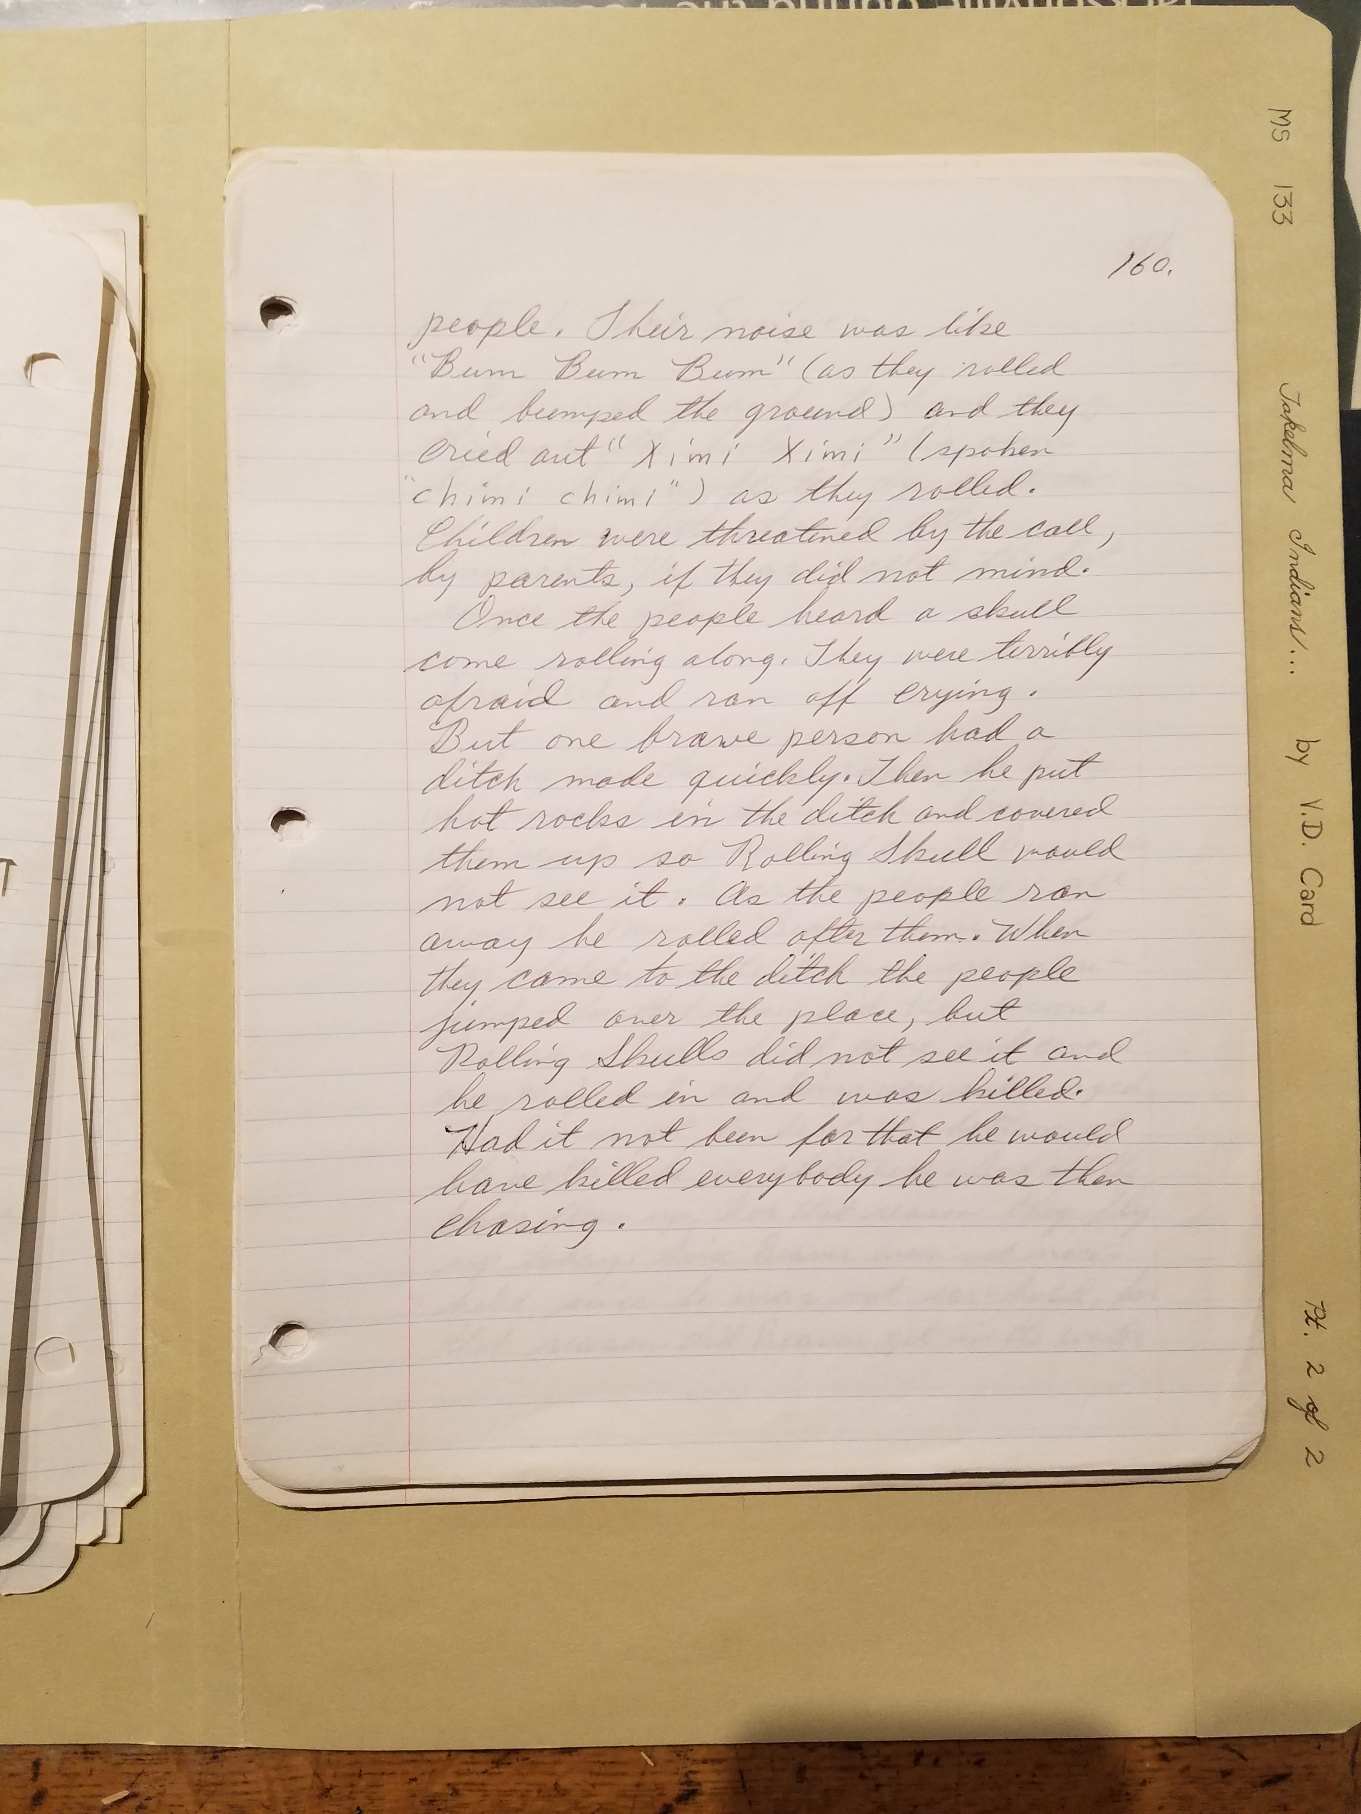 160.
people. Their noise was like
"Bum Bum Bum" (as they rolled
and bumped the ground) and they
cried out "Ximi Ximi" (spoken
"chimi chimi") as they rolled.
Children were threatined by the call,
by parents, if they did not mind.
Once the people heard a skull
come rolling along. They were terribly
afraid and ran off crying.
But one brave person had a
ditch made quickly. Then he put
hot rocks in the ditch and covered
them up so Rolling Skull would
not see it. As the people ran
away he rolled after them. When
they came to the ditch the people
jumped over the place, but
Rolling Skulls did not see it and
he rolled in and was killed.
Had it not been for that he would
have killed everybody he was then
chasing.
MS 133 Takelma Indians... by V.D. Card Pt. 2 of 2
T